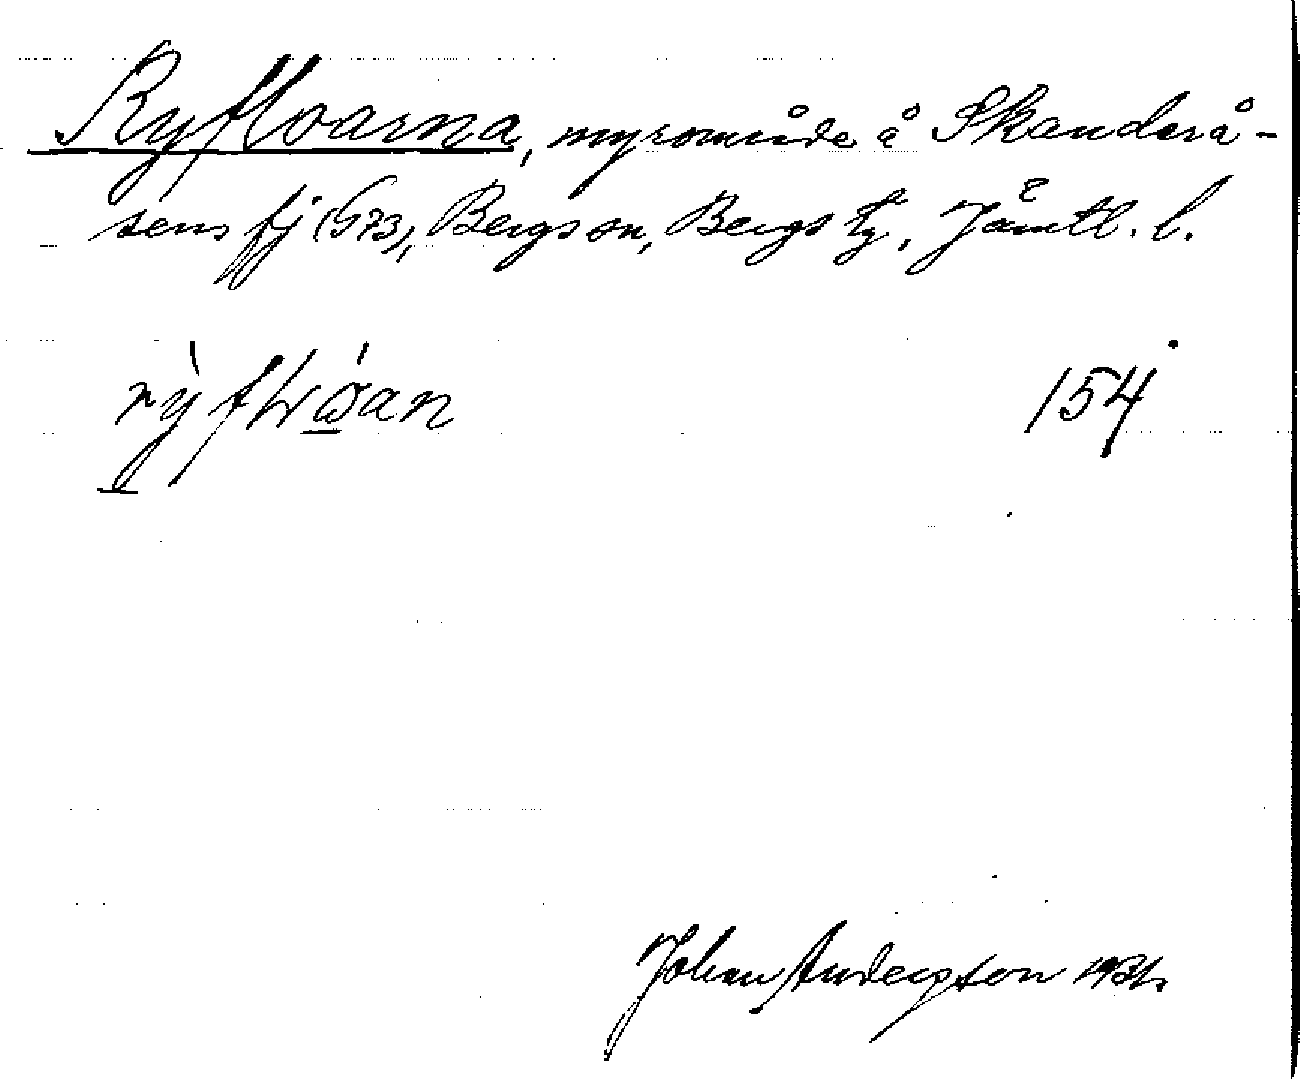 Ryfloarna, myrområde å Skanderå-
sens fj (573), Bergs sn, Bergs tg. Jämtl. l.
154
Johan Anderzton 1931.